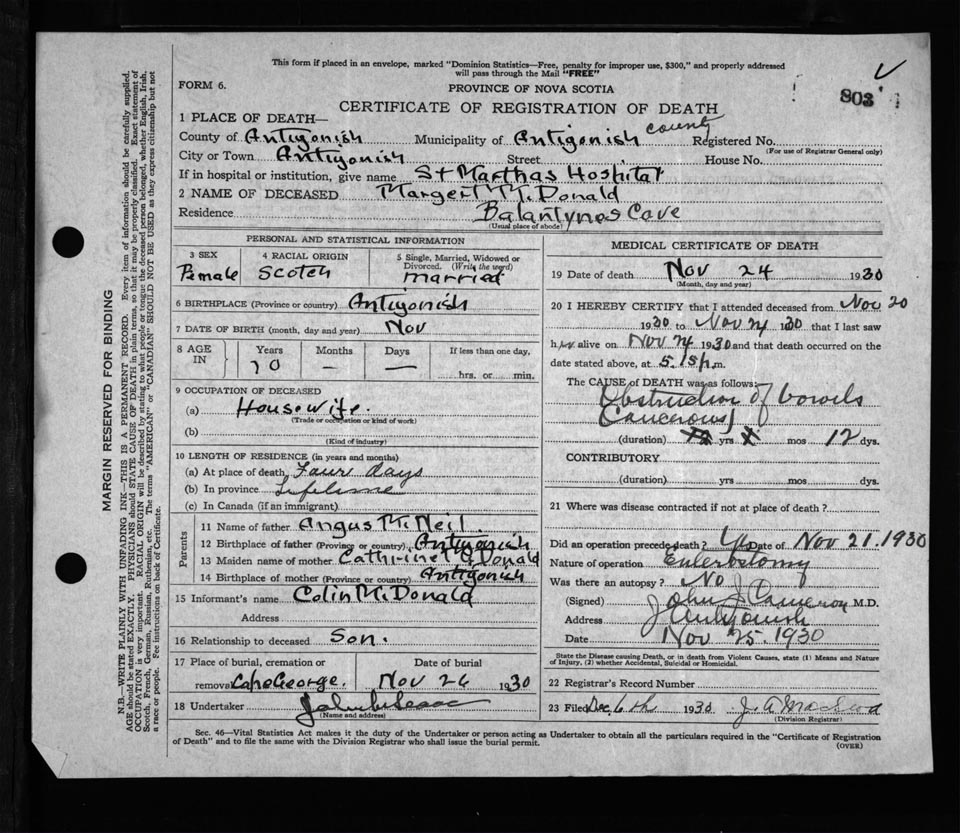 This form if placed in an envelope, marked "Dominion Statistics—Free, penalty for improper use, $300," and properly addressed
will pass through the Mail "FREE"
FORM 6.
PROVINCE OF NOVA SCOTIA
803
CERTIFICATE OF REGISTRATION OF DEATH
1 PLACE OF DEATH—
County of Antigonish Municipality of Antigonish County Registered No.
(For use of Registrar General only)
City or Town Antigonish Street House No.
If in hospital or institution, give name St Marthas Hospital
2 NAME OF DECEASED Margert McDonald
Residence Balantynes Cove
(Usual place of abode)
PERSONAL AND STATISTICAL INFORMATION
3 SEX
Female
4 RACIAL ORIGIN
Scotch
5 Single, Married, Widowed or
Divorced. (Write the word)
married
6 BIRTHPLACE (Province or country) Antigonish
7 DATE OF BIRTH (month, day and year) Nov
8 AGE
IN
Years
70
Months
—
Days
—
If less than one day,
hrs. or min.
9 OCCUPATION OF DECEASED
(a) Housewife.
(Trade or occupation or kind of work)
(b)
(Kind of industry)
10 LENGTH OF RESIDENCE (in years and months)
(a) At place of death, Four days
(b) In province Lifetime
(c) In Canada (if an immigrant)
Parents
11 Name of father Angus McNeil.
12 Birthplace of father (Province or country) Antigonish
13 Maiden name of mother Cathrine McDonald
14 Birthplace of mother (Province or country) Antigonish
15 Informant's name Colin McDonald
Address
16 Relationship to deceased Son.
17 Place of burial, cremation or
removal Cape George.
Date of burial
Nov 26 1930
18 Undertaker
(Name and address)
MEDICAL CERTIFICATE OF DEATH
19 Date of death Nov 24 1930
(Month, day and year)
20 I HEREBY CERTIFY that I attended deceased from Nov 20
1930 to Nov 24 1930 that I last saw
her alive on Nov 24 1930 and that death occurred on the
date stated above, at 5.15 p.m.
The CAUSE of DEATH was as follows:
Obstruction of bowels
(Cancerous)
(duration) yrs mos 12 dys.
CONTRIBUTORY
(duration) yrs mos. dys.
21 Where was disease contracted if not at place of death?
Did an operation precede death? Yes Date of Nov 21.1930
Nature of operation Enterostomy
Was there an autopsy? No
(Signed) John J Cameron M.D.
Address Antigonish
Date Nov 25. 1930
State the Disease causing Death, or in death from Violent Causes, state (1) Means and Nature
of Injury, (2) whether Accidental, Suicidal or Homicidal.
22 Registrar's Record Number
23 Filed Dec. 6th 1930 J. A MacLeod
(Division Registrar)
Sec. 46—Vital Statistics Act makes it the duty of the Undertaker or person acting as Undertaker to obtain all the particulars required in the "Certificate of Registration
of Death" and to file the same with the Division Registrar who shall issue the burial permit.
(OVER)
MARGIN RESERVED FOR BINDING
N.B.—WRITE PLAINLY WITH UNFADING INK—THIS IS A PERMANENT RECORD. Every item of information should be carefully supplied.
AGE should be stated EXACTLY. PHYSICIANS should STATE CAUSE OF DEATH in plain terms, so that it may be properly classified. Exact statement of
OCCUPATION is very important. RACIAL ORIGIN will be described by stating to what people or tongue the deceased person belonged, whether English, Irish,
Scotch, French, German, Russian, Ruthenian, etc. The terms "AMERICAN" or "CANADIAN" SHOULD NOT BE USED as they express citizenship but not
a race or people. See instructions on back of Certificate.